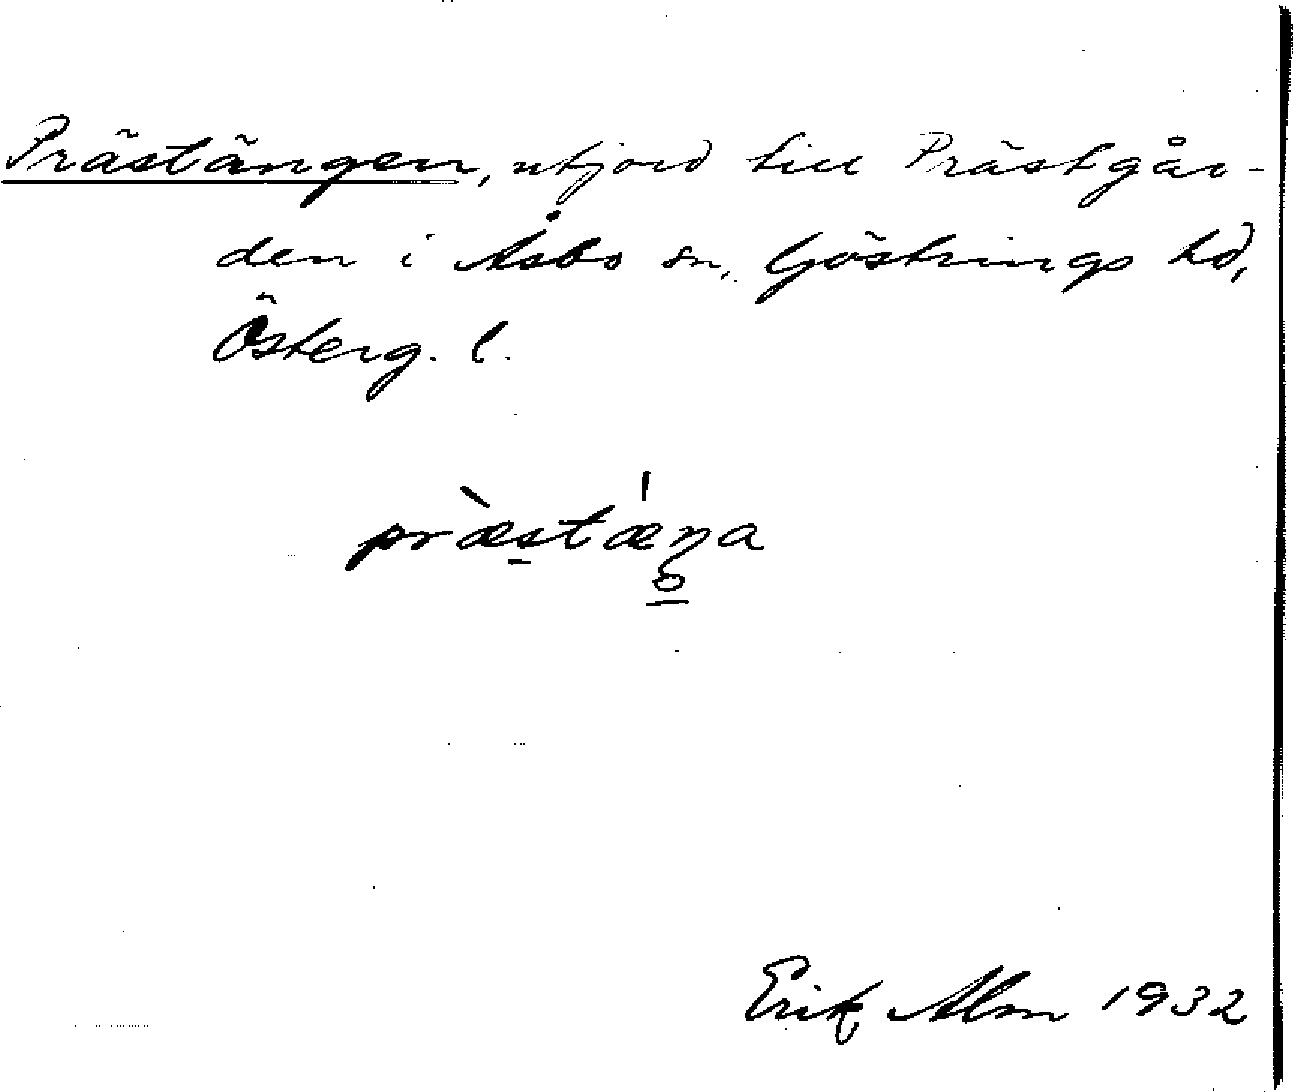 Prästängen, utjord till Prästgår-
den i Åsbo sn, Göstrings hd,
Österg. l.
præ̀stǽŋa
Erik Alm 1932